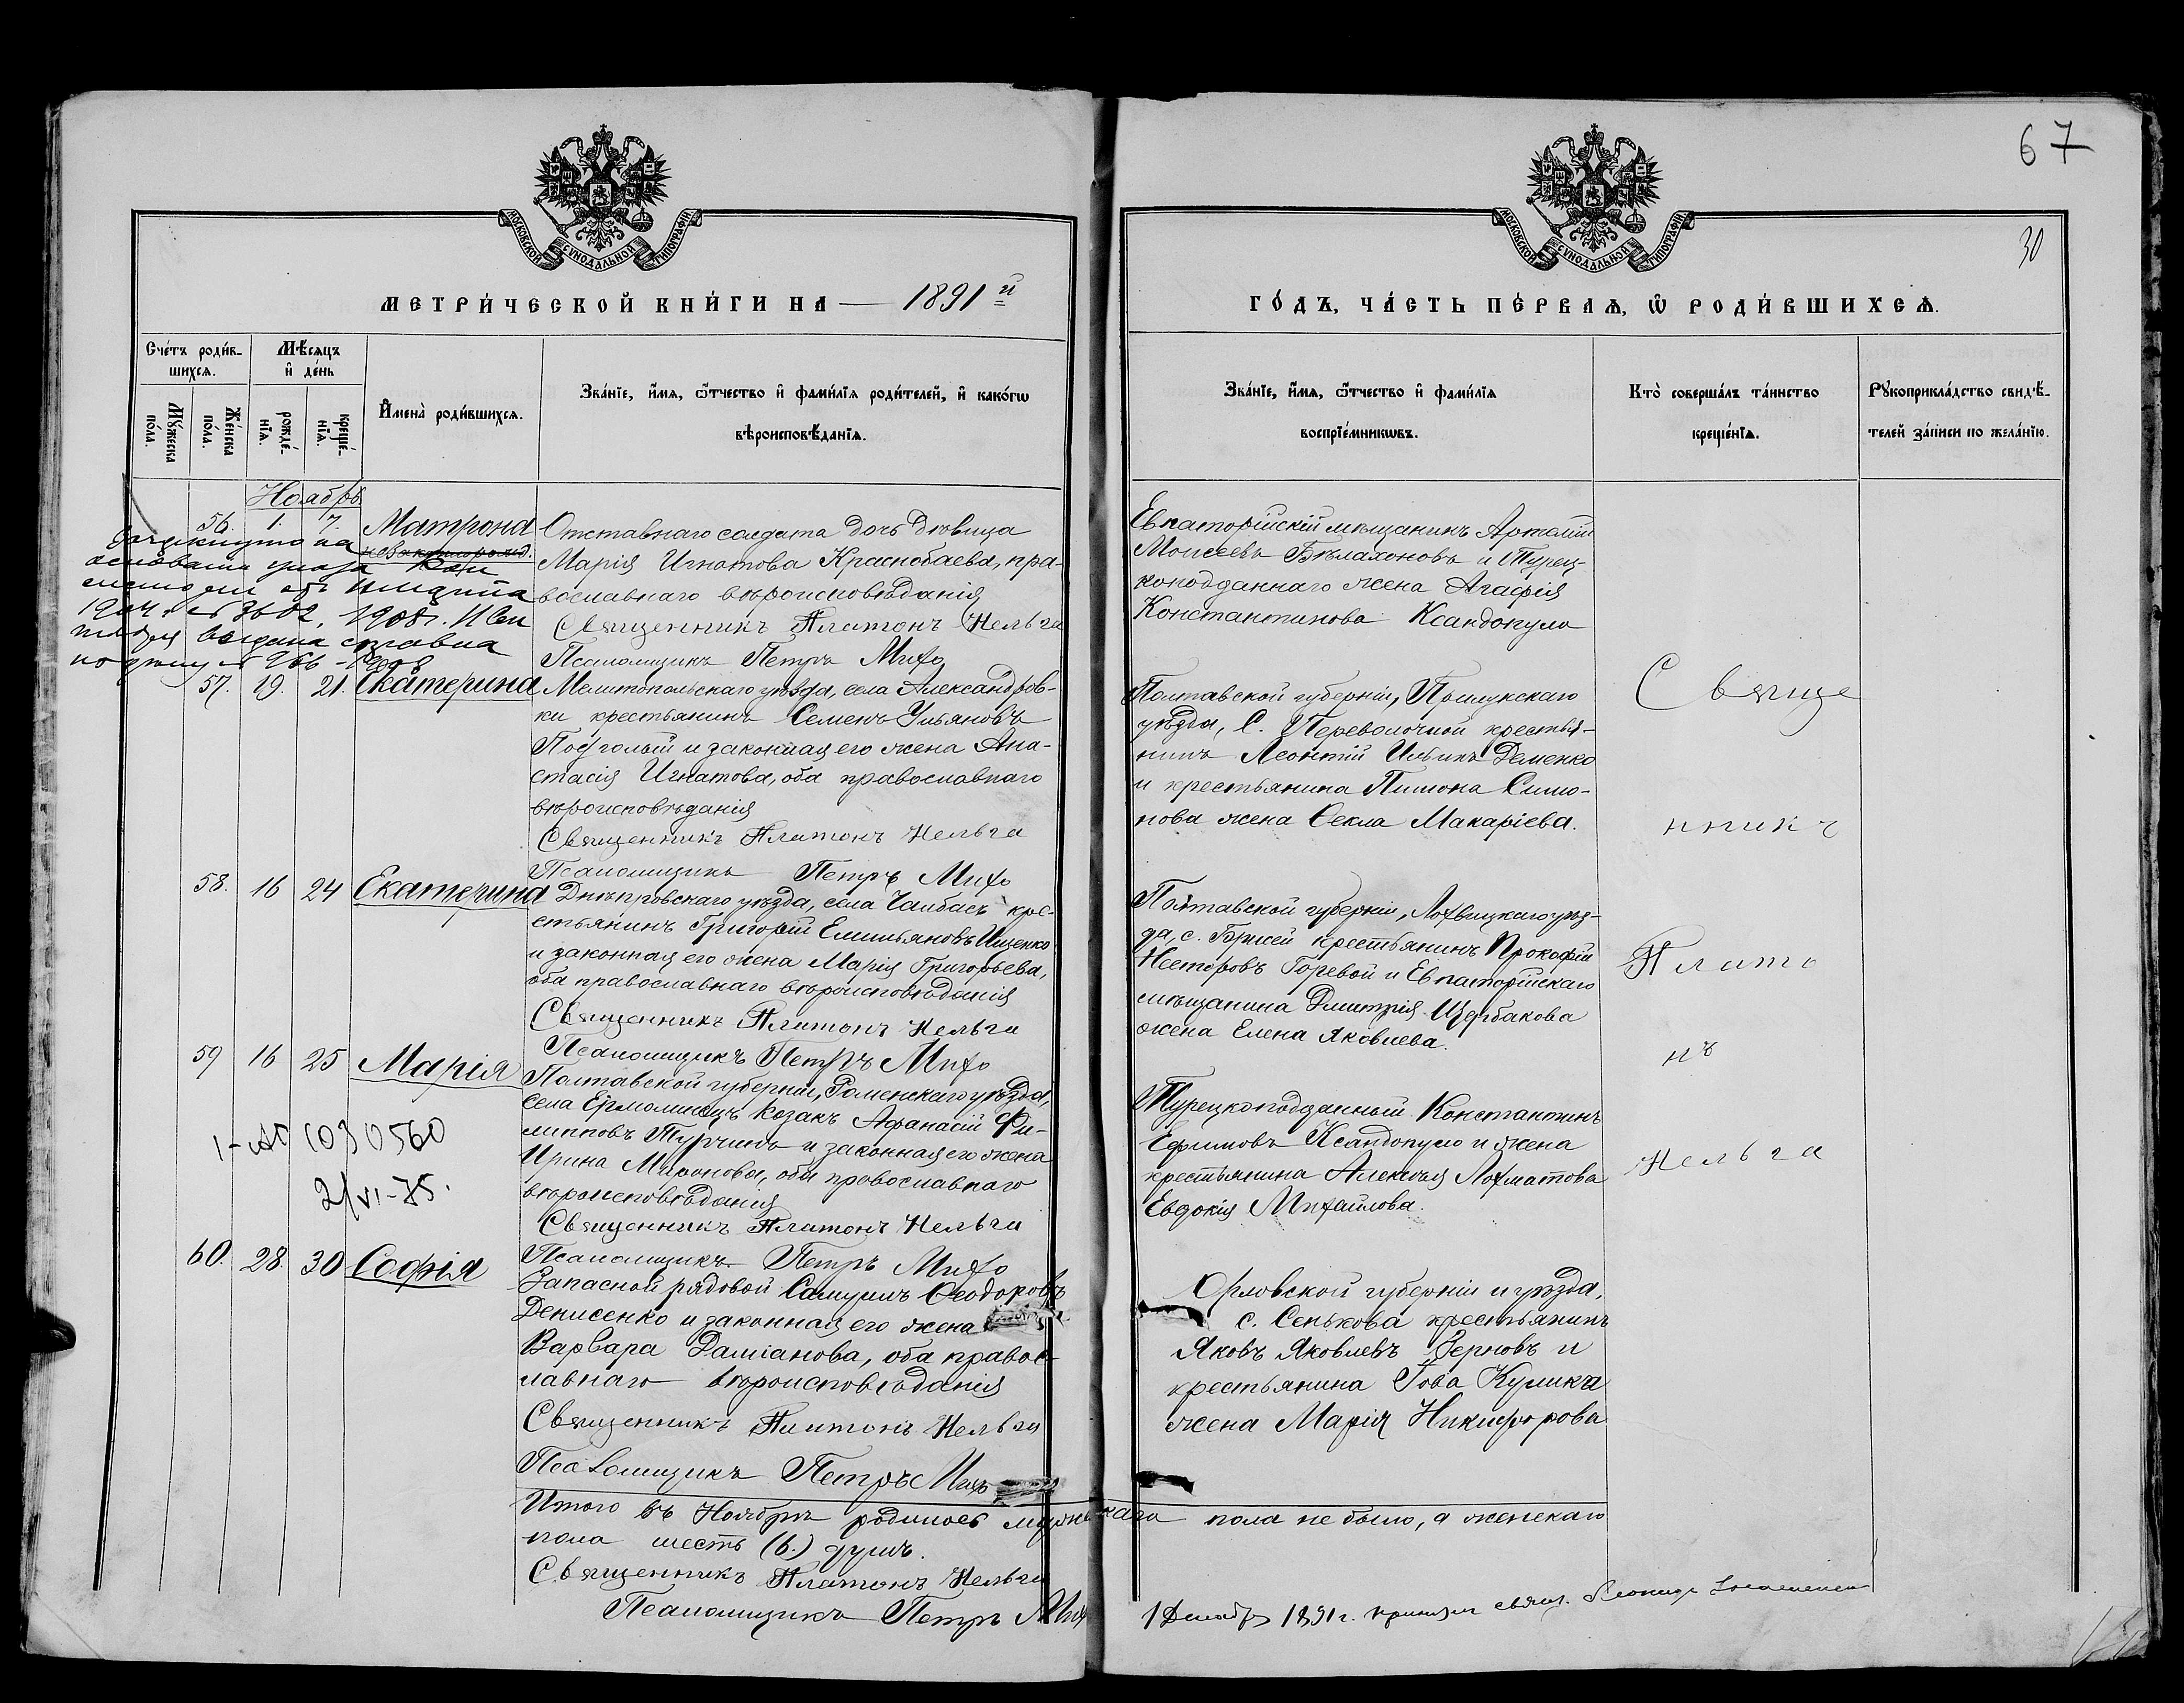 67
30
МОСКОВСКОЙ СѴНОДАЛЬНОЙ ТИПОГРАФІИ
МОСКОВСКОЙ СѴНОДАЛЬНОЙ ТИПОГРАФІИ
МЕТРИ́ЧЕСКОЙ КНИ́ГИ НА — 1891 й
ГО́ДЪ, ЧА́СТЬ ПЕ́РВАЯ, Ѿ РОДИ́ВШИХСЯ.
Сче́тъ роди́в-
шихся.
Мѣ́сяцъ
и҆ де́нь
Мꙋ́жеска
по́ла.
Же́нска
по́ла.
рожде́-
нїя.
креще́-
нїя.
И҆мена̀ роди́вшихся.
Зва́нїе, и҆́мя, ѻ҆́тчество и҆ фами́лїя роди́телей, и҆ како́гѡ
вѣроисповѣ́данїя.
Зва́нїе, и҆́мя, ѻ҆́тчество и҆ фами́лїя
воспрїе́мникѡвъ.
Кто̀ соверша́лъ та́инство
креще́нїя.
Рꙋкоприкла́дство свидѣ́-
телей за́писи по жела́нїю.
Ноябрь
56. 1. 7. Матрона
Отставнаго солдата дочь девица
Марія Игнатова Краснобаева, пра-
вославнаго вѣроисповѣданія
Священникъ Платонъ Нельга
Псаломщикъ Петръ Михо
Зачеркнуто на
основаніи указа
1904 г. № 3602, 1908 г.
выдана справка
по № 266 - 1908
Евпаторійскій мѣщанинъ Артемій
Моисеевъ Бѣлахоновъ и Турец-
коподданнаго жена Агафія
Константинова Ксандопуло
57. 19. 21. Екатерина
Мелитопольскаго уѣзда, села Александров-
ки крестьянинъ Семенъ Ульяновъ
Подголый и законная его жена Ана-
стасія Игнатова, оба православнаго
вѣроисповѣданія
Священникъ Платонъ Нельга
Псаломщикъ Петръ Михо
Полтавской губерніи, Прилукскаго
уѣзда, С. Переволочной крестья-
нинъ Леонтій Ильинъ Деменко
и крестьянина Пимона Симо-
нова жена Ѳекла Макаріева.
58. 16 24 Екатерина
Днѣпровскаго уѣзда, села Чалбасъ кре-
стьянинъ Григорій Емильяновъ Ищенко
и законная его жена Марія Григорьева,
оба православнаго вѣроисповѣданія
Священникъ Платонъ Нельга
Псаломщикъ Петръ Михо
Полтавской губерніи, Лохвицкаго уѣз-
да, с. крестьянинъ Прокофій
Несторовъ Горевой и Евпаторійскаго
мѣщанина Дмитрія Щербакова
жена Елена Яковлева.
59 16 25 Марія
Полтавской губерніи, Роменскаго уѣзда,
села Ермолинецъ козакъ Афанасій Фи-
липповъ Турчинъ и законная его жена
Ирина Миронова, оба православнаго
вѣроисповѣданія
Священникъ Платонъ Нельга
Псаломщикъ Петръ Михо
1-АП 1030560
2/VI-75.
Турецкоподданный Константинъ
Ефимовъ Ксандопуло и жена
крестьянина Алексѣя Лохматова
Евдокія Михайлова.
60. 28. 30 Софія
Запасной рядовой Самуилъ Ѳеодоровъ
Денисенко и законная его жена
Варвара Даміанова, оба правос-
лавнаго вѣроисповѣданія
Священникъ Платонъ Нельга
Псаломщикъ Петръ Михо
Орловской губерніи и уѣзда,
с. Сенькова крестьянинъ
Яковъ Яковлевъ Зерновъ и
крестьянина Іова Кулика
жена Марія Никифорова
Свяще
нникъ
Плато
нъ
Нельга
Итого въ Ноябрѣ родилось мужескаго пола не было, а женскаго
пола шесть (6.) душъ.
Священникъ Платонъ Нельга
Псаломщикъ Петръ Михо
1 Декабря 1891 г. свящ. Леонидъ